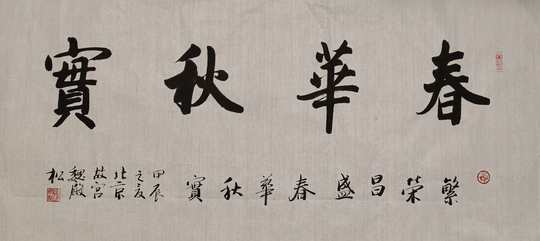 春華秋實
繁榮昌盛春華秋實
甲辰
之夏
北京
故宮
魏殿
松